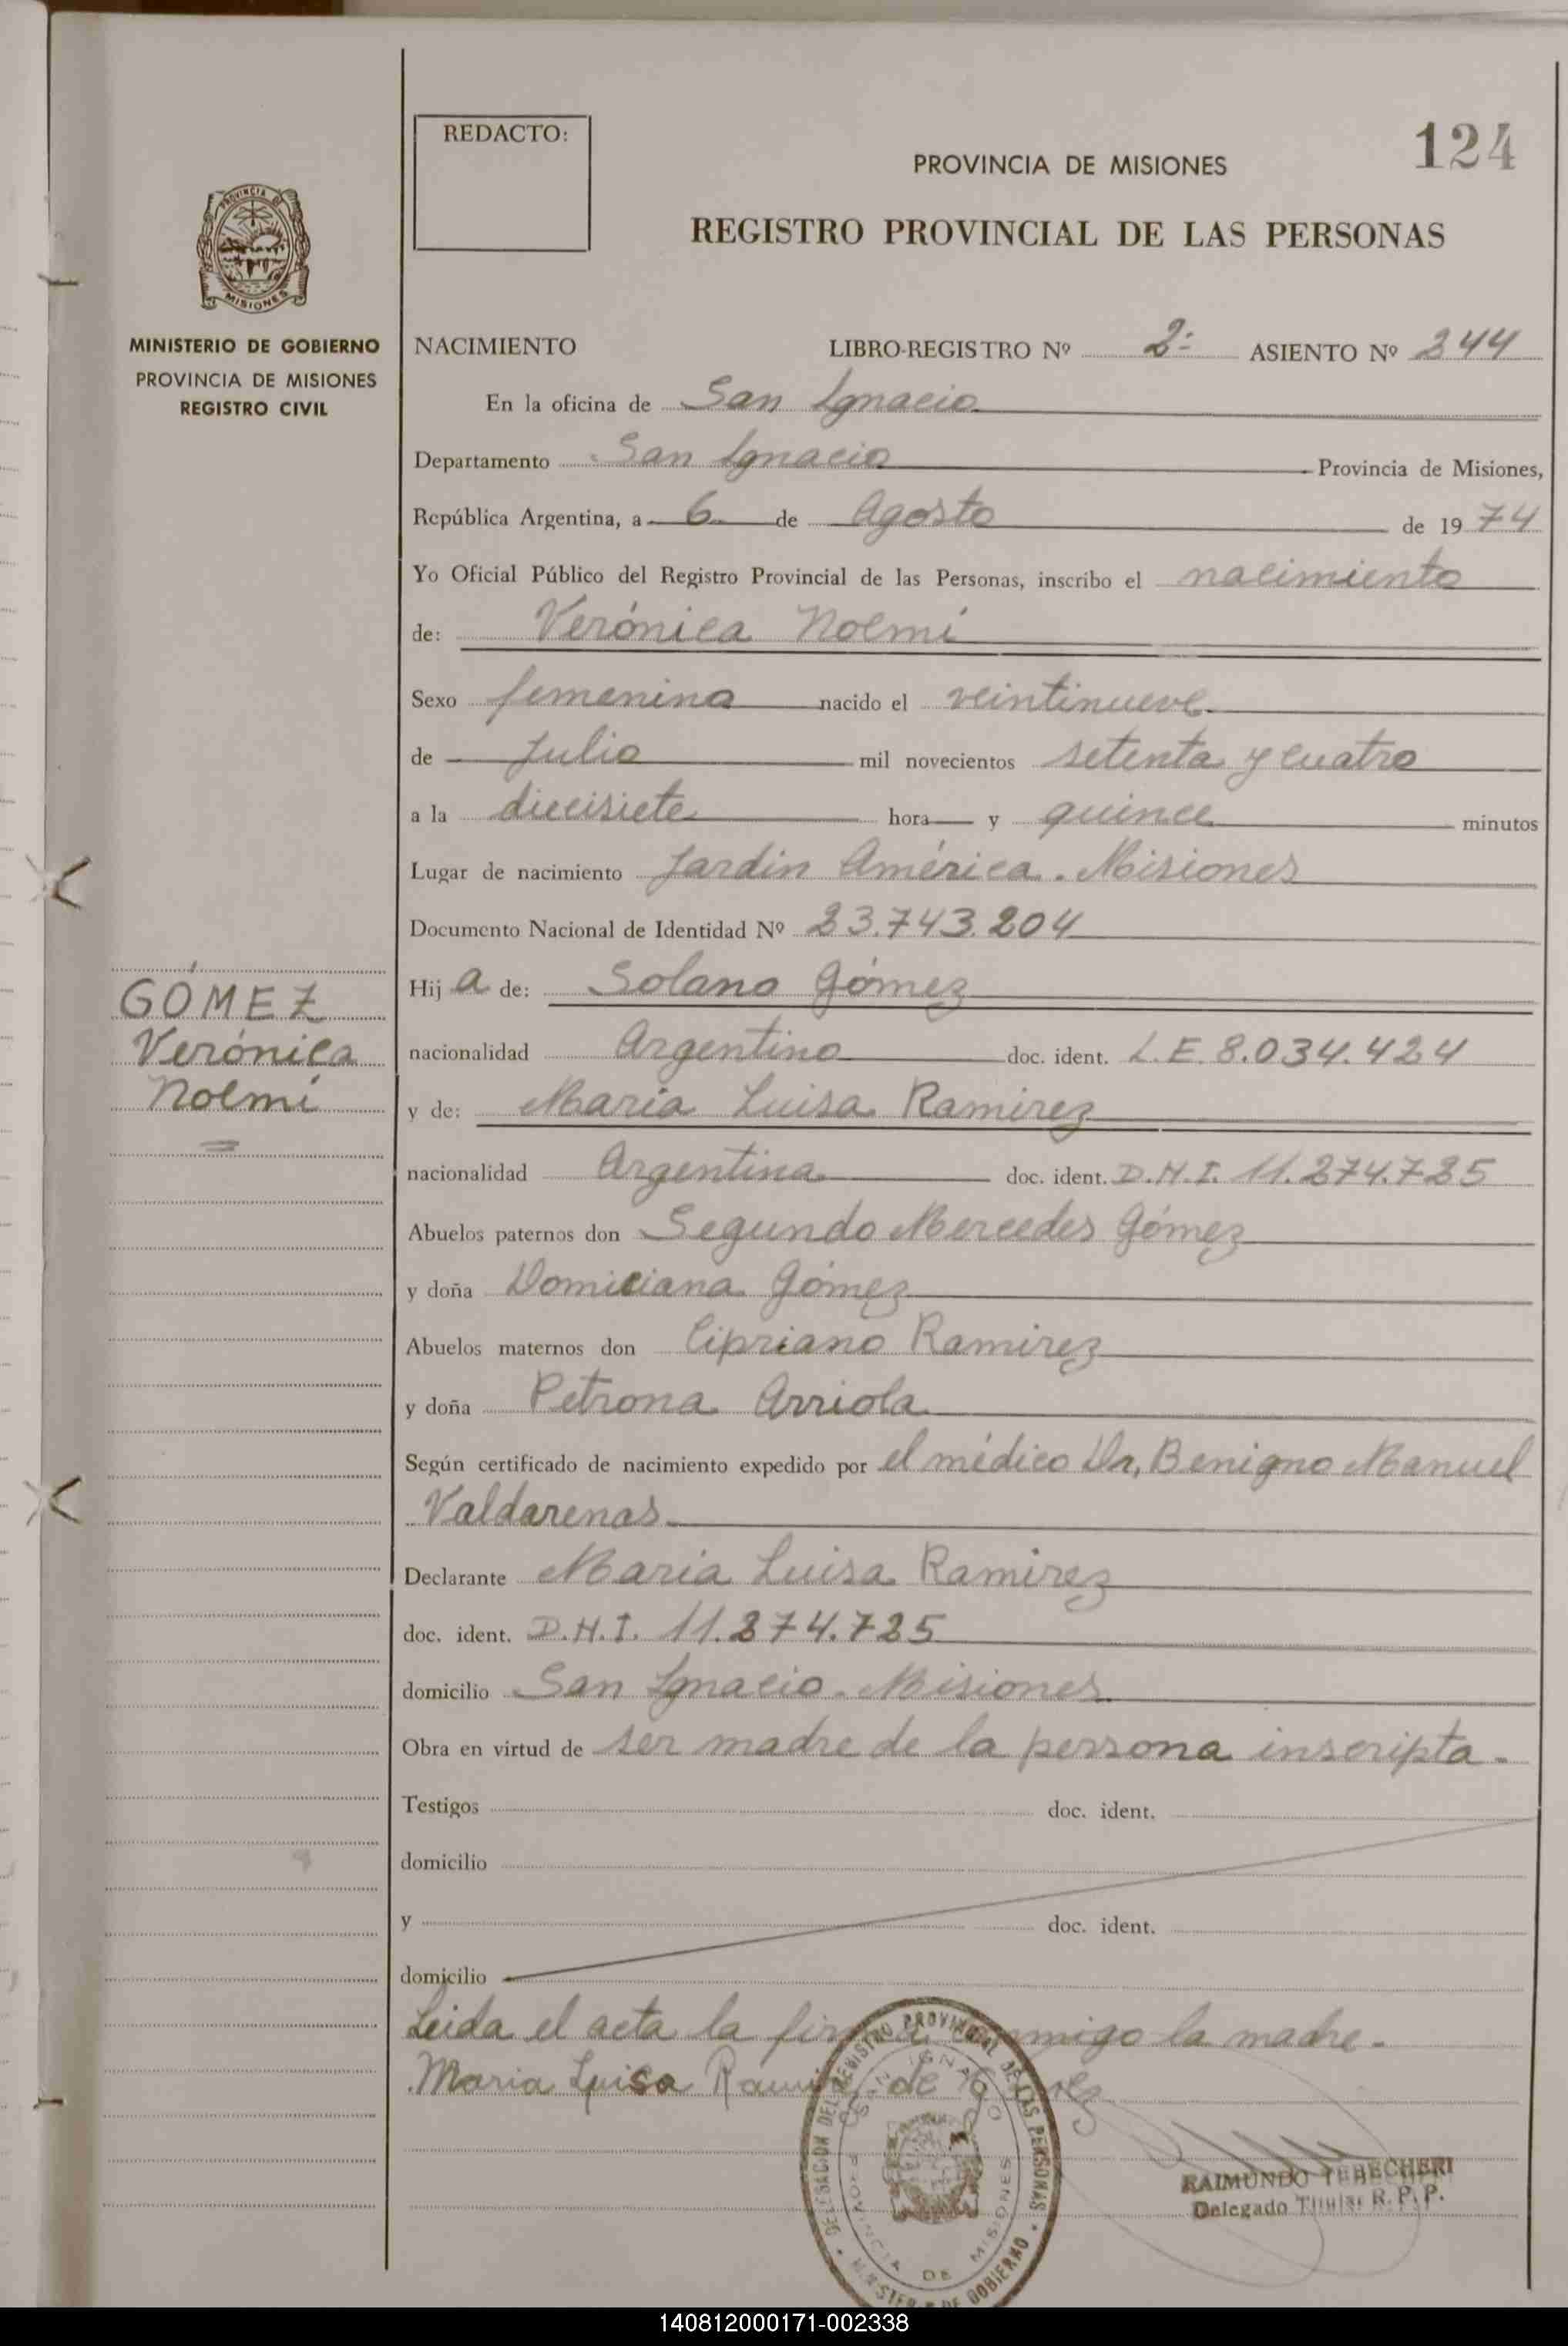 REDACTO:
124
PROVINCIA DE MISIONES
REGISTRO PROVINCIAL DE LAS PERSONAS
PROVINCIA DE
MISIONES
MINISTERIO DE GOBIERNO
PROVINCIA DE MISIONES
REGISTRO CIVIL
NACIMIENTO LIBRO-REGISTRO Nº 2º ASIENTO Nº 244
En la oficina de San Ignacio
Departamento San Ignacio Provincia de Misiones,
República Argentina, a 6 de Agosto de 1974
Yo Oficial Público del Registro Provincial de las Personas, inscribo el nacimiento
de: Verónica Noemí
Sexo femenino nacido el veintinueve
de Julio mil novecientos setenta y cuatro
a la diecisiete hora y quince minutos
Lugar de nacimiento Jardín América. Misiones
Documento Nacional de Identidad Nº 23.743.204
Hija de: Solano Gómez
nacionalidad Argentino doc. ident. L.E. 8.034.424
y de: María Luisa Ramirez
nacionalidad Argentina doc. ident. D.N.I. 11.274.725
Abuelos paternos don Segundo Mercedes Gómez
y doña Domiciana Gómez
Abuelos maternos don Cipriano Ramirez
y doña Petrona Arriola
Según certificado de nacimiento expedido por el médico Dr, Benigno Manuel
Valdarenas
Declarante María Luisa Ramirez
doc. ident. D.N.I. 11.274.725
domicilio San Ignacio - Misiones
Obra en virtud de ser madre de la persona inscripta.
Testigos doc. ident.
domicilio
y doc. ident.
domicilio
Leida el acta la firma conmigo la madre.
Maria Luisa Ramirez de
GÓMEZ
Verónica
Noemí
DELEGACION DEL REGISTRO PROVINCIAL DE LAS PERSONAS
SAN IGNACIO
PROVINCIA DE MISIONES
MINISTERIO DE GOBIERNO
RAIMUNDO TERECHERI
Delegado Titular R. P. P.
140812000171-002338